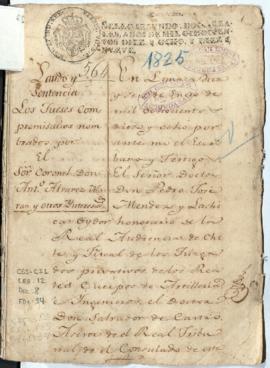 SELLO SEGUNDO, DOS REALES
LOS AÑOS DE MIL OCHOCIENTOS
DIEZ Y OCHO, Y DIEZ Y
NUEVE.
1825
564
Laudo y
Sentencia
Los Jueses Com
promisarios nom
brados por
El
Sor. Coronel Don
Anto. Alvarez
y otros Interesad
En Lima
y de Enero de
mil ochocientos
dies y ocho por
ante mi el Escri
bano y Testigos
El Señor Doctor
Don Pedro José
Mendez y Lachi
ca Oydor honorario de la
Real Audiencia de Chi
le, y Fiscal de los Juzga
dos privativos de los Rea
les Cuerpos de Artilleria
é Ingenieros, el doctor
Don Salvador de Castro
Asesor de el Real Tribu
nal de el Consulado de este
CGS: C31
LEG: 12
DOC: 8
FOL: 94